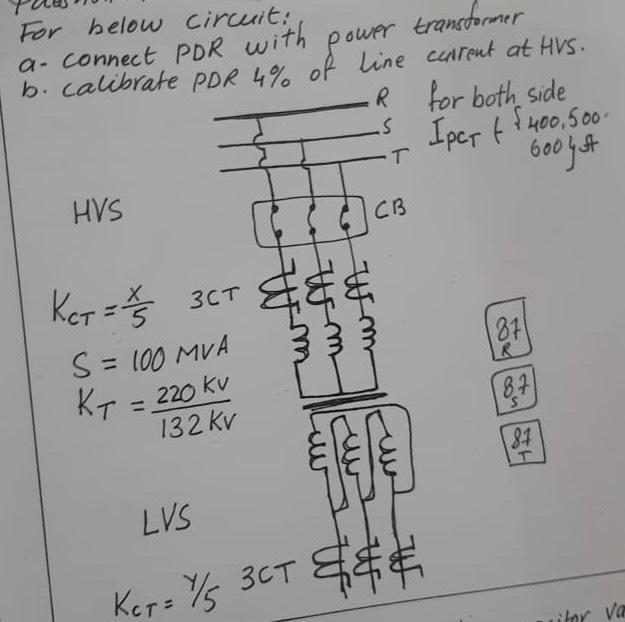 For below circuit:
a- connect PDR with power transformer
b. calibrate PDR 4% of line current at HVS.
for both side
IPCT { {400,500.
600} A
R
S
T
CB
HVS
KCT = X/5 3CT
S = 100 MVA
KT = 220 KV / 132 KV
87 R
87 S
87 T
LVS
KCT = Y/5 3CT